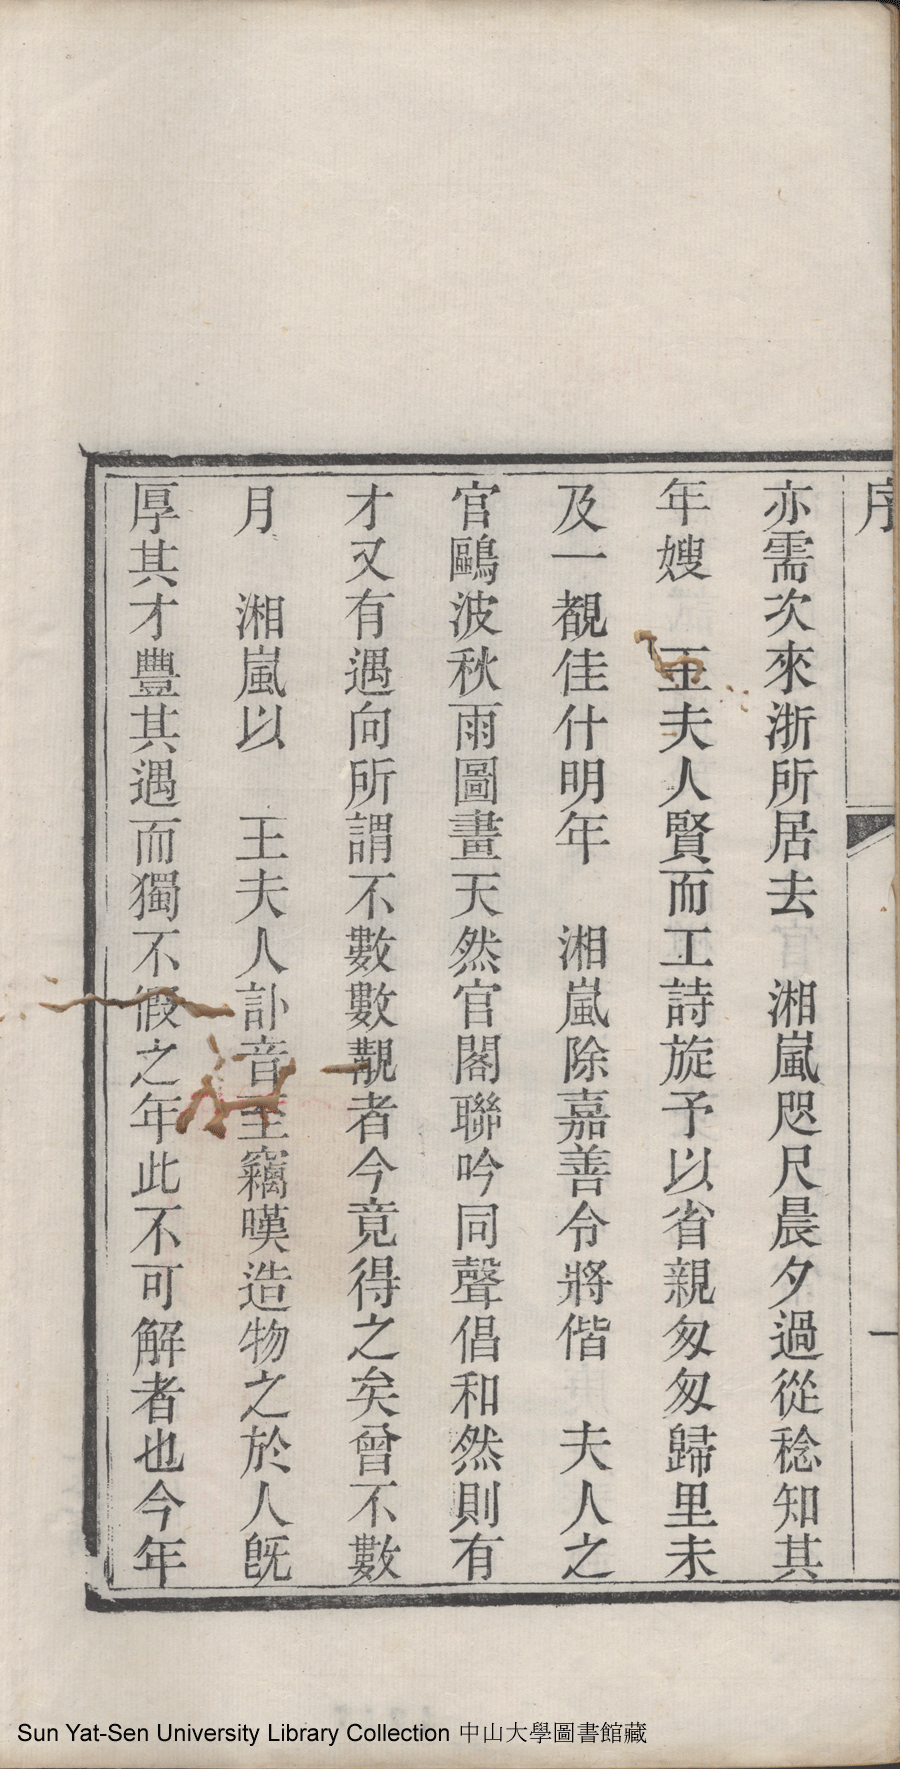 序
一
亦需次來浙所居去　湘嵐咫尺晨夕過從稔知其
年嫂　王夫人賢而工詩旋予以省親匆匆歸里未
及一覩佳什明年　湘嵐除嘉善令將偕　夫人之
官鷗波秋雨圖畫天然官閣聯吟同聲倡和然則有
才又有遇向所謂不數數覯者今竟得之矣曾不數
月　湘嵐以　王夫人訃音至竊嘆造物之於人旣
厚其才豐其遇而獨不假之年此不可解者也今年
Sun Yat-Sen University Library Collection 中山大學圖書館藏